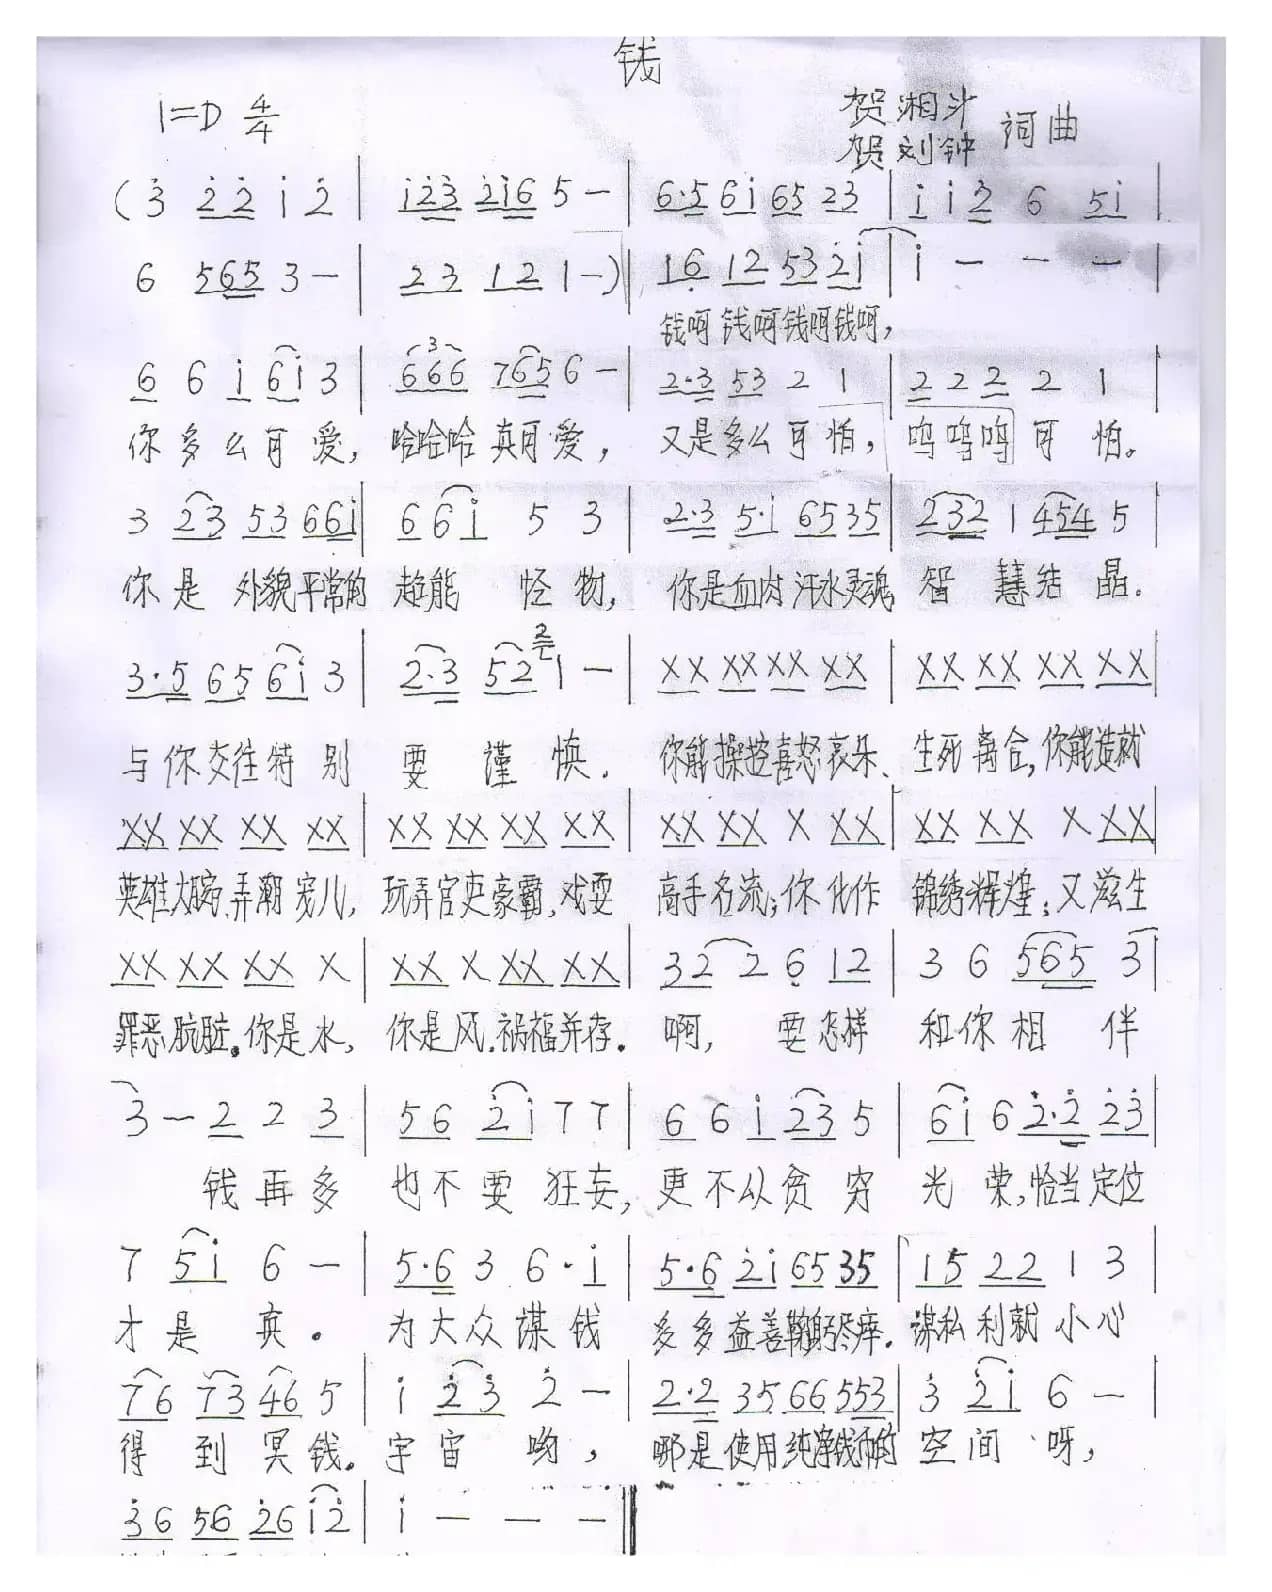 钱
1=D 4/4
贺湘斗
贺刘钟 词曲
(3̇ 2̇2̇ i 2̇ | i2̇3̇ 2̇i6 5 — | 6·5 6i 65 23 | i i 2̇ 6 5i |
6 565 3 — | 23 12 1 —) | 16̣ 12 53 2̇i | i — — — |
钱呵钱呵钱呵钱呵,
6 6 i 6i 3 | 666 765 6 — | 2·3 53 2 1 | 2 2 2 2 1 |
你多么可爱, 哈哈哈真可爱, 又是多么可怕, 呜呜呜可怕。
3 23 53 66i | 6 6i 5 3 | 2·3 5·i 65 35 | 232 1 454 5 |
你是外貌平常的超能怪物, 你是血肉汗水灵魂智慧结晶.
3·5 65 6i 3 | 2·3 52 1 — | XX XX XX XX | XX XX XX XX |
与你交往特别要谨慎. 你能操控喜怒哀乐、生死离合,你能造就
XX XX XX XX | XX XX XX XX | XX XX X XX | XX XX X XX |
英雄大腕,弄潮宠儿, 玩弄官吏豪霸,戏耍高手名流;你化作锦绣辉煌;又滋生
XX XX XX X | XX X XX XX | 32 2 6̣ 12 | 3 6 565 3 |
罪恶肮脏。你是水, 你是风.祸福并存. 啊, 要怎样和你相伴
3 — 2 2 3 | 56 2̇i 7 7 | 6 6 i 23 5 | 6i 6 2̇·2̇ 2̇3̇ |
钱再多也不要狂妄, 更不从贫穷光荣,恰当定位
7 5i 6 — | 5·6 3 6·i | 5·6 2̇i 65 35 | 15 22 1 3 |
才是真。为大众谋钱多多益善鞠躬尽瘁.谋私利就小心
76 73 46 5 | i 2̇3̇ 2̇ — | 2·2 35 66 553 | 3̇ 2̇i 6 — |
得到冥钱。宇宙哟, 哪是使用纯净钱币的空间呀,
3̇6 56 2̇6 i2̇ | i — — — ‖